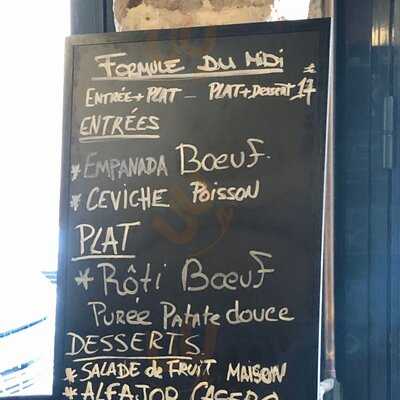 FORMULE DU MIDI
ENTRÉE + PLAT - PLAT + DESSERT 17 €
ENTRÉES
* EMPANADA BŒUF.
* CEVICHE POISSON
PLAT
* RÔTI BŒUF
PURÉE PATATE DOUCE
DESSERTS.
* SALADE DE FRUIT MAISON
* ALFAJOR CASERO